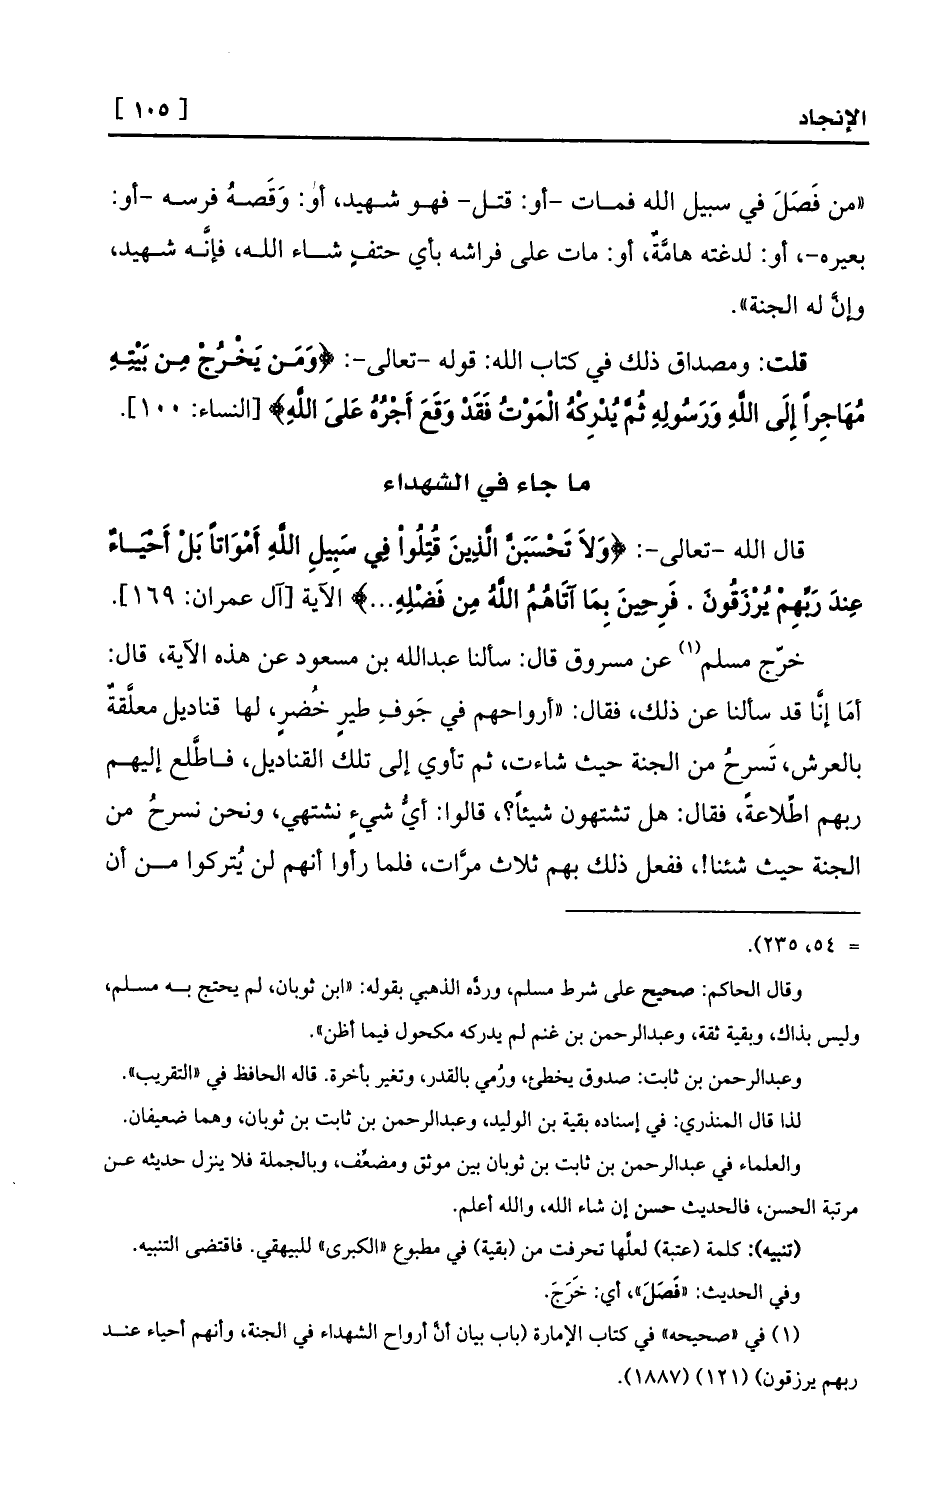 الإنجاد
[ ١٠٥ ]
«من فَصَلَ في سبيل الله فمات -أو: قتل- فهو شهيد، أو: وَقَصهُ فرسه -أو:
بعيره-، أو: لدغته هامَّةٌ، أو: مات على فراشه بأي حتفٍ شاء الله، فإنَّه شهيد،
وإنَّ له الجنة».
قلت: ومصداق ذلك في كتاب الله: قوله -تعالى-: ﴿وَمَن يَخْرُجْ مِن بَيْتِهِ
مُهَاجِراً إِلَى اللَّهِ وَرَسُولِهِ ثُمَّ يُدْرِكْهُ الْمَوْتُ فَقَدْ وَقَعَ أَجْرُهُ عَلَىَ اللَّهِ﴾ [النساء: ١٠٠].
ما جاء في الشهداء
قال الله -تعالى-: ﴿وَلاَ تَحْسَبَنَّ الَّذِينَ قُتِلُواْ فِي سَبِيلِ اللَّهِ أَمْوَاتاً بَلْ أَحْيَاءٌ
عِندَ رَبِّهِمْ يُرْزَقُونَ . فَرِحِينَ بِمَا آتَاهُمُ اللَّهُ مِن فَضْلِهِ...﴾ الآية [آل عمران: ١٦٩].
خرّج مسلم(١) عن مسروق قال: سألنا عبدالله بن مسعود عن هذه الآية، قال:
أمَا إنَّا قد سألنا عن ذلك، فقال: «أرواحهم في جَوفِ طيرٍ خُضرٍ، لها قناديل معلَّقةٌ
بالعرش، تَسرحُ من الجنة حيث شاءت، ثم تأوي إلى تلك القناديل، فاطَّلع إليهم
ربهم اطِّلاعةً، فقال: هل تشتهون شيئاً؟، قالوا: أيُّ شيءٍ نشتهي، ونحن نسرحُ من
الجنة حيث شئنا!، ففعل ذلك بهم ثلاث مرَّات، فلما رأوا أنهم لن يُتركوا من أن
= ٥٤، ٢٣٥).
وقال الحاكم: صحيح على شرط مسلم، وردّه الذهبي بقوله: «ابن ثوبان، لم يحتج به مسلم،
وليس بذاك، وبقية ثقة، وعبدالرحمن بن غنم لم يدركه مكحول فيما أظن».
وعبدالرحمن بن ثابت: صدوق يخطئ، ورُمي بالقدر، وتغير بأخرة. قاله الحافظ في «التقريب».
لذا قال المنذري: في إسناده بقية بن الوليد، وعبدالرحمن بن ثابت بن ثوبان، وهما ضعيفان.
والعلماء في عبدالرحمن بن ثابت بن ثوبان بين موثق ومضعِّف، وبالجملة فلا ينزل حديثه عن
مرتبة الحسن، فالحديث حسن إن شاء الله، والله أعلم.
(تنبيه): كلمة (عتبة) لعلَّها تحرفت من (بقية) في مطبوع «الكبرى» للبيهقي. فاقتضى التنبيه.
وفي الحديث: «فَصَلَ»، أي: خَرَجَ.
(١) في «صحيحه» في كتاب الإمارة (باب بيان أنَّ أرواح الشهداء في الجنة، وأنهم أحياء عند
ربهم يرزقون) (١٢١) (١٨٨٧).